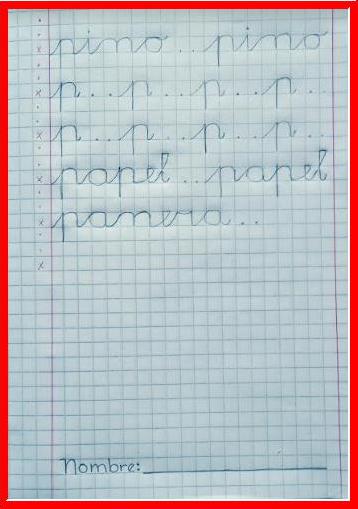 pino..pino
p..p..p..p..
p..p..p..p..
papel..papel
panera..
Nombre: